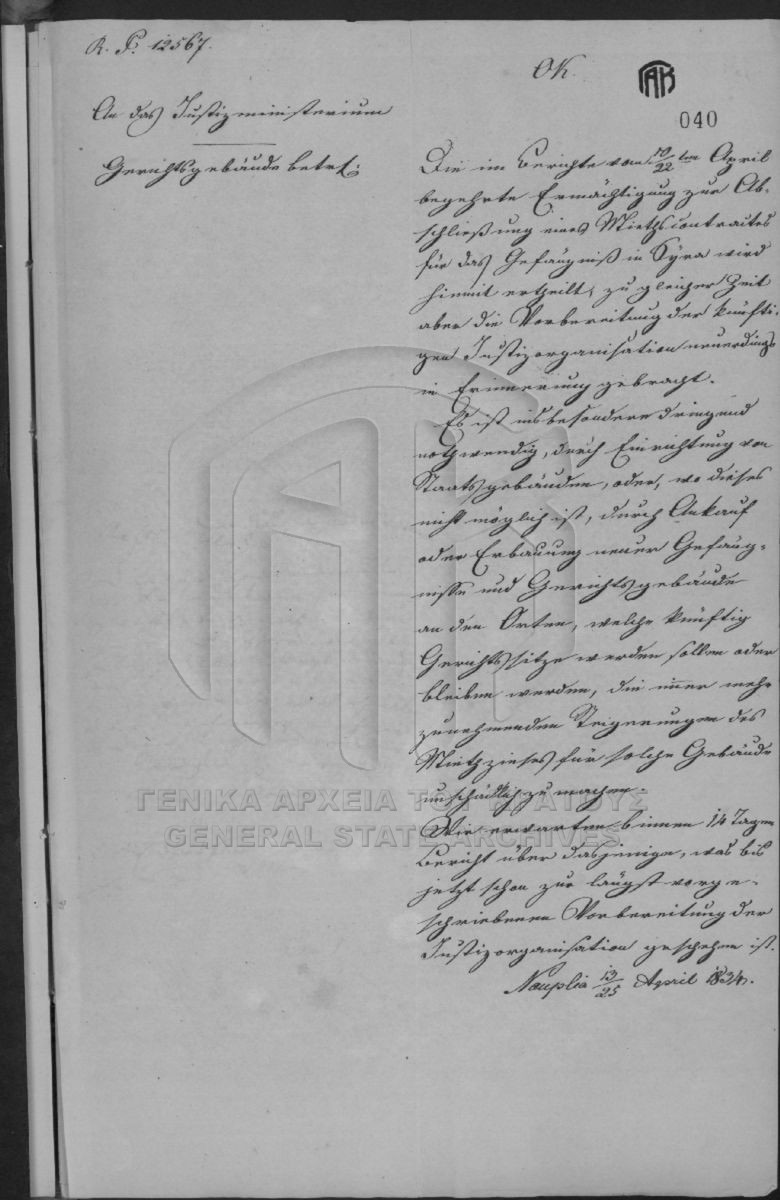 R. P. 12567.
OK.
ΓΑΚ
040
An das Justizministerium
Gerichtsgebäude betr:
Die im Berichte vom 10/22ten April
begehrte Ermächtigung zur Ab-
schließung eines Miethscontractes
für das Gefängniß in Syra wird
hiemit ertheilt, zu gleicher Zeit
aber die Vorbereitung der künfti-
gen Justizorganisation neuerdings
in Erinnerung gebracht.
Es ist insbesondere dringend
nothwendig, durch Einrichtung von
Staatsgebäuden, oder, wo dieses
nicht möglich ist, durch Ankauf
oder Erbauung neuer Gefäng-
nisse und Gerichtsgebäude
an den Orten, welche künftig
Gerichtssitze werden sollen oder
bleiben werden, die immer mehr
zunehmenden Steigerungen des
Miethzinses für solche Gebäude
unschädlich zu machen.
Wir erwarten binnen 14 Tagen
Bericht über dasjenige, was bis
jetzt schon zur längst vorge-
schriebenen Vorbereitung der
Justizorganisation geschehen ist.
Nauplia 13/25 April 1834.
ΓΕΝΙΚΑ ΑΡΧΕΙΑ ΤΟΥ ΚΡΑΤΟΥΣ
GENERAL STATE ARCHIVES